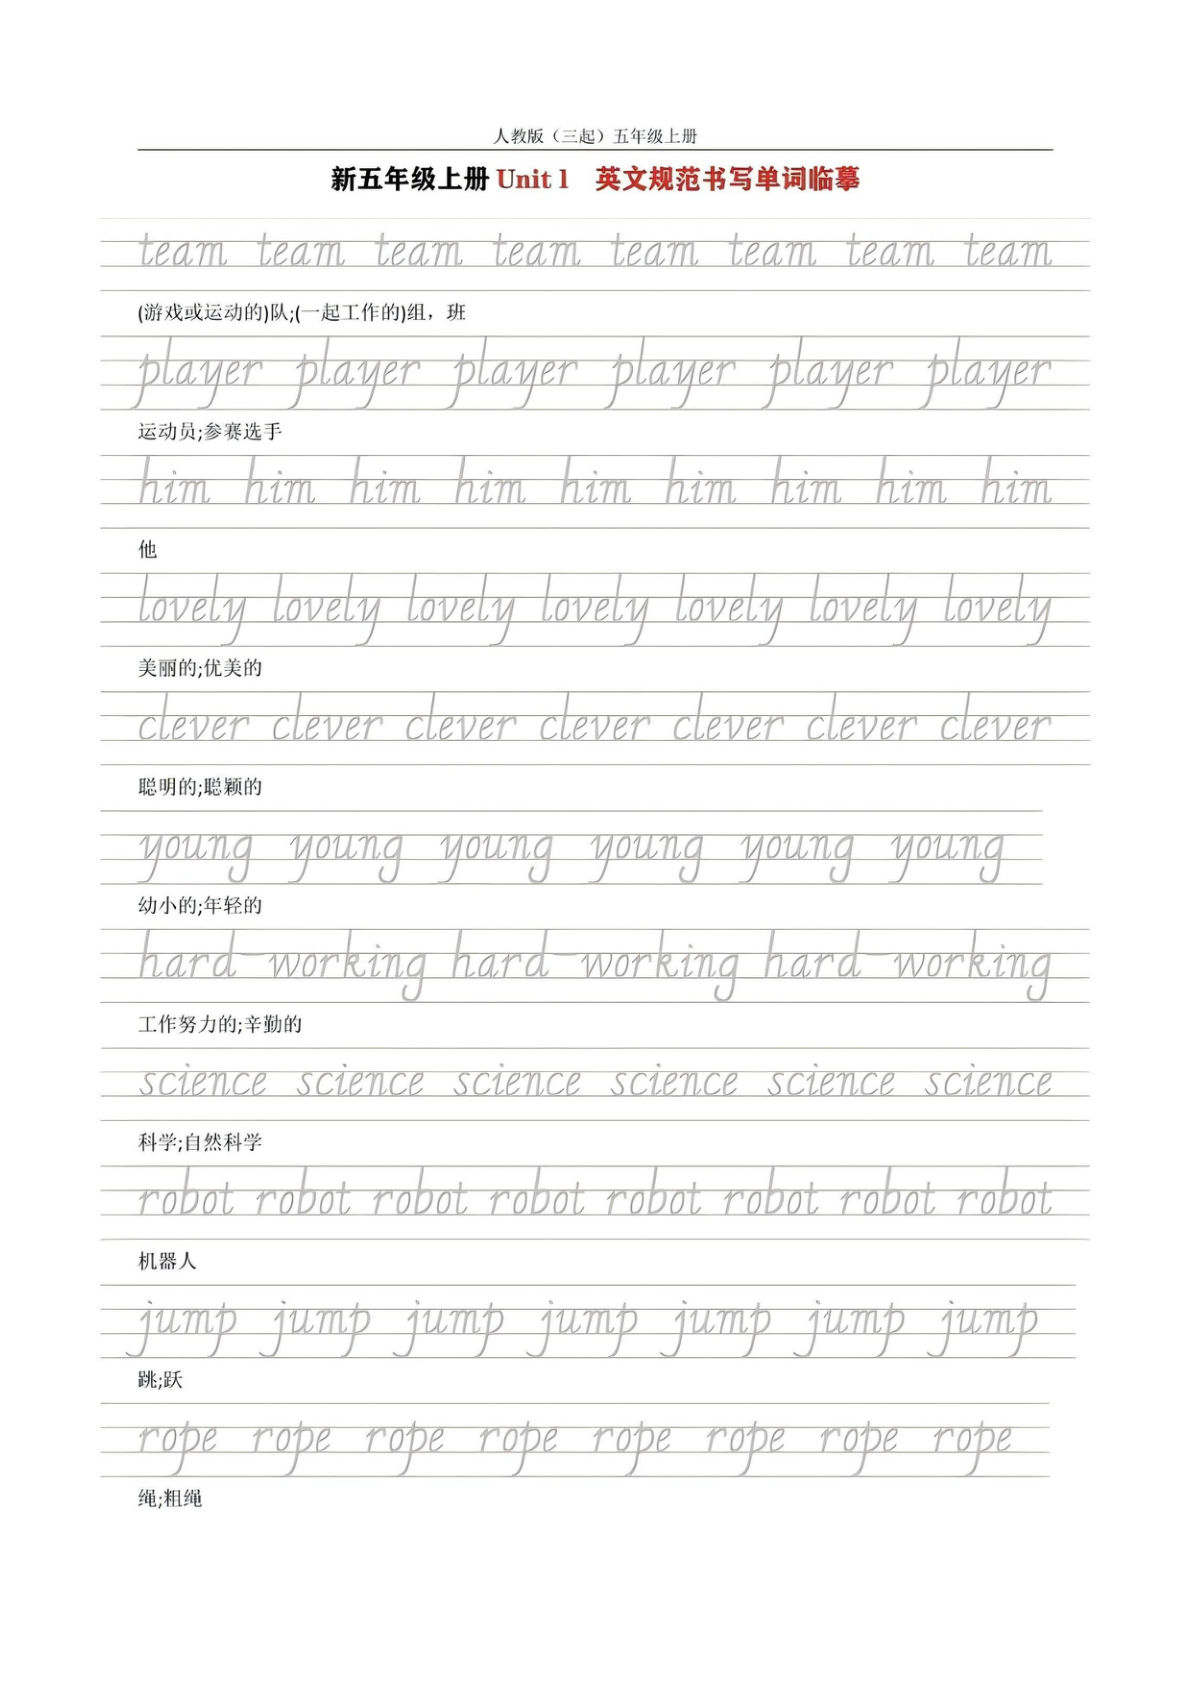 人教版（三起）五年级上册
新五年级上册 Unit 1 英文规范书写单词临摹
team team team team team team team team
(游戏或运动的)队;(一起工作的)组，班
player player player player player player
运动员;参赛选手
him him him him him him him him him
他
lovely lovely lovely lovely lovely lovely lovely
美丽的;优美的
clever clever clever clever clever clever clever
聪明的;聪颖的
young young young young young young
幼小的;年轻的
hard-working hard-working hard-working
工作努力的;辛勤的
science science science science science science
科学;自然科学
robot robot robot robot robot robot robot robot
机器人
jump jump jump jump jump jump jump
跳;跃
rope rope rope rope rope rope rope rope
绳;粗绳